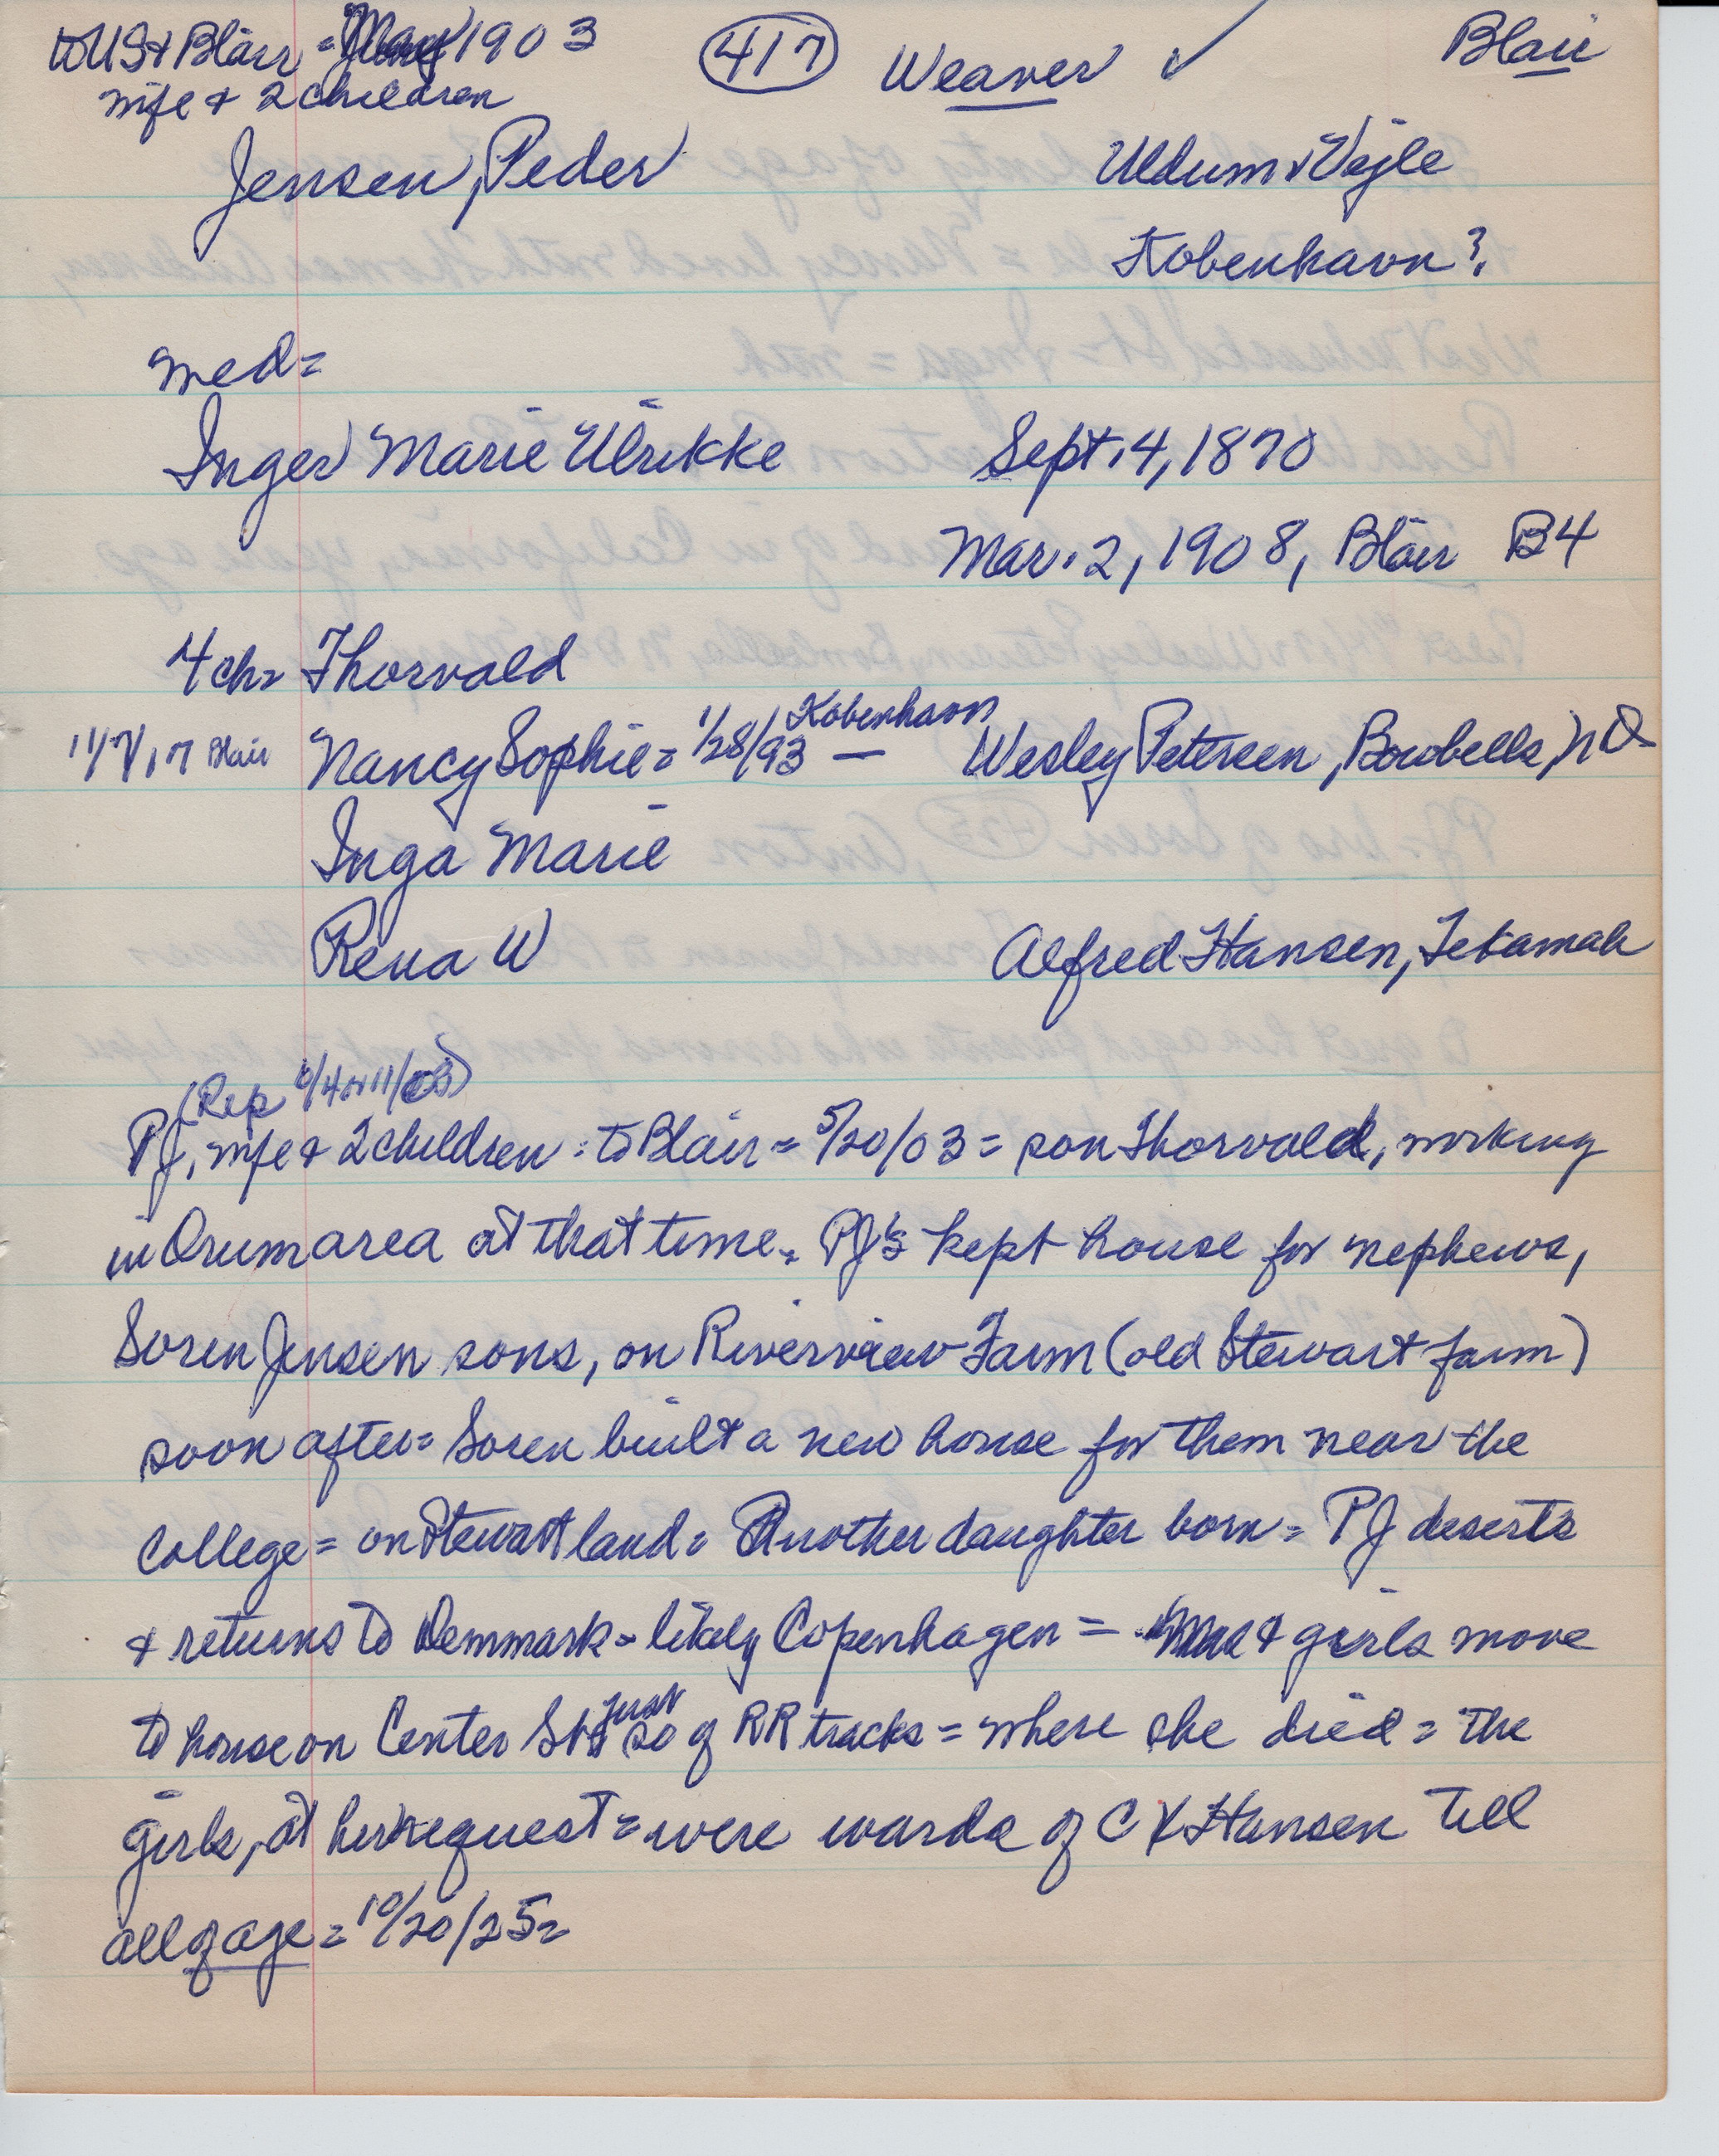 to US & Blair = May 1903 (417) Weaver ✓ Blair
wife & 2 children
Jensen, Peder Uldum v Vejle
Kobenhavn?
med=
Inger Marie Ulrikke Sept. 4, 1870
Mar. 2, 1908, Blair B4
4 ch= Thorvald
11/7/17 Blair Nancy Sophie = 1/28/93 Kobenhavn — Wesley Petersen, Bowbells, ND
Inga Marie
Rena W Alfred Hansen, Tekamah
(Rep 6/4 or 11/03)
PJ, wife & 2 children = to Blair = 5/20/03 = son Thorvald, working
in Orum area at that time = PJ's kept house for nephews,
Soren Jensen sons, on Riverview Farm (old Stewart farm)
soon after = Soren built a new house for them near the
College = on Stewart land = Another daughter born = PJ deserts
& returns to Denmmark - likely Copenhagen = & girls move
to house on Center St just so of RR tracks = where she died = the
girls, at her request = were wards of C X Hansen till
all of age = 10/20/25=